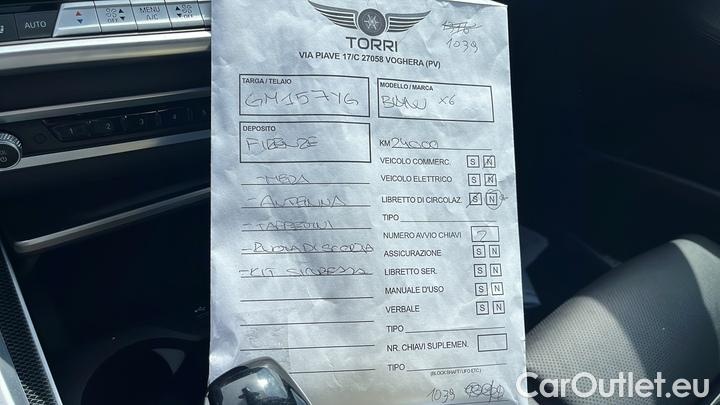 AUTO
OFF
MENU
A/C
OFF
1039
TORRI
VIA PIAVE 17/C 27058 VOGHERA (PV)
TARGA / TELAIO
GM157YG
MODELLO / MARCA
BMW X6
DEPOSITO
FIRENZE
KM 24000
VEICOLO COMMERC. S N
VEICOLO ELETTRICO S N
LIBRETTO DI CIRCOLAZ. S N
TIPO
NUMERO AVVIO CHIAVI 2
ASSICURAZIONE S N
LIBRETTO SER. S N
MANUALE D'USO S N
VERBALE S N
TIPO
NR. CHIAVI SUPLEMEN.
TIPO
(BLOCK SHAFT / UFO ETC.)
- ANTENNA
- TAPPETINI
- RUOTA DI SCORTA
- KIT SICUREZZA
1039
CarOutlet.eu